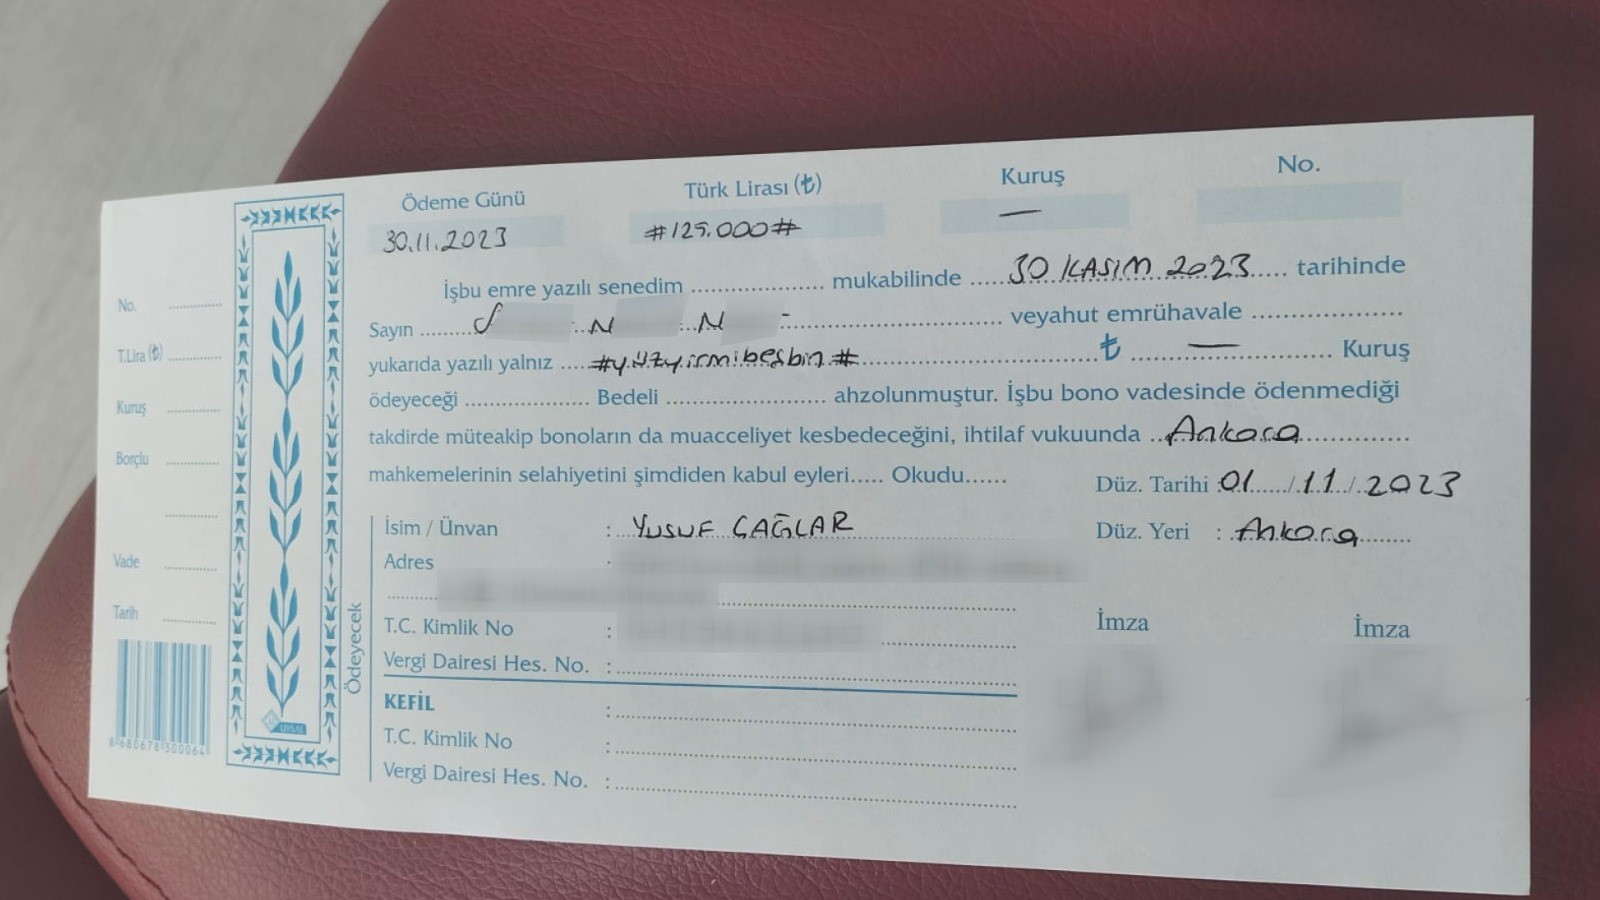 Ödeme Günü Türk Lirası (₺) Kuruş No.
30.11.2023 #125.000# —
İşbu emre yazılı senedim .................... mukabilinde ......30 KASIM 2023...... tarihinde
Sayın ........ N N ........ veyahut emrühavale ....................
yukarıda yazılı yalnız ....#yüzyirmibeşbin#.................... ₺ ........—........ Kuruş
ödeyeceği .................... Bedeli .................... ahzolunmuştur. İşbu bono vadesinde ödenmediği
takdirde müteakip bonoların da muacceliyet kesbedeceğini, ihtilaf vukuunda ..Ankara..........
mahkemelerinin selahiyetini şimdiden kabul eyleri..... Okudu......
Düz. Tarihi : 01 / 11 / 2023
Düz. Yeri : Ankara
Ödeyecek
İsim / Ünvan : YUSUF ÇAĞLAR
Adres :
T.C. Kimlik No :
Vergi Dairesi Hes. No. :
KEFİL :
T.C. Kimlik No :
Vergi Dairesi Hes. No. :
İmza İmza
No. ..........
T.Lira (₺) ..........
Kuruş ..........
Borçlu ..........
Vade ..........
Tarih ..........
8 680678 300064
UYSAL